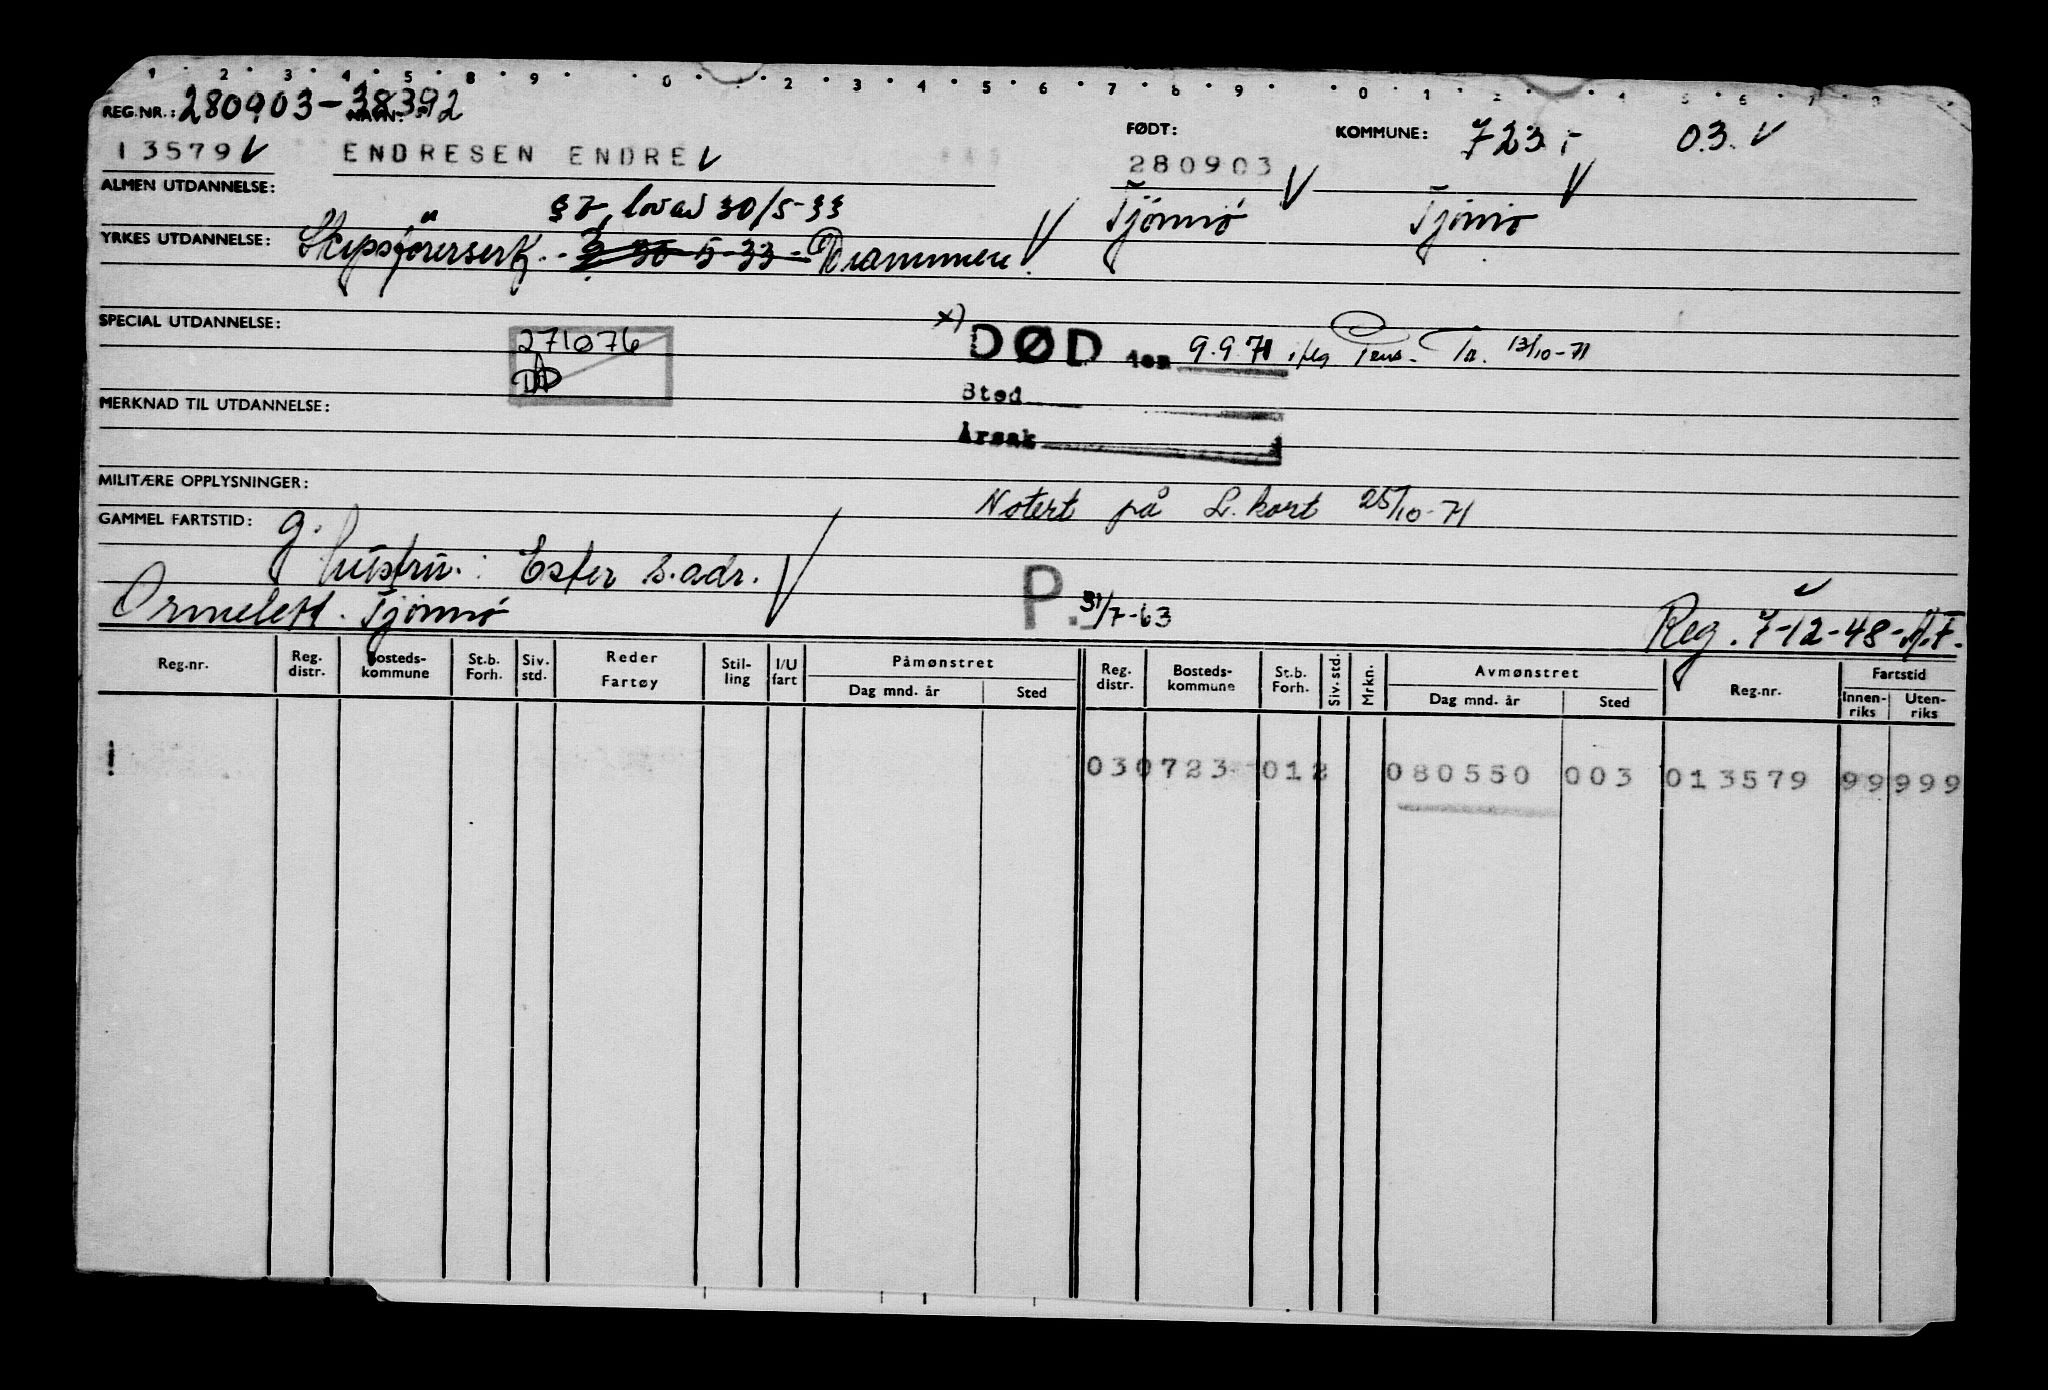 1 2 3 4 5 8 9 0 2 3 4 5 6 7 8 9 0 1 2 4 5 6 7 8
REG.NR.: 280903-38392 NAVN: FØDT: KOMMUNE: 723,- 03. V
13579 V ENDRESEN ENDRE V 280903 V V
ALMEN UTDANNELSE: § 7, lov av 30/5-33 Tjømø Tjømø
YRKES UTDANNELSE: Skipsførersertf. - 30-5-33- Drammen. V
SPECIAL UTDANNELSE: 271076 x) DØD den 9.9.71 iflg Pens. Tr. 13/10-71
Sted
MERKNAD TIL UTDANNELSE: Årsak
MILITÆRE OPPLYSNINGER: Notert på L. kort 25/10-71
GAMMEL FARTSTID: g.
hustru: Ester s. adr. V
Ormelett. Tjømø P. 31/7-63 Reg. 7-12-48- A.F.
Reg.nr. Reg. distr. Bosteds-kommune St.b. Forh. Siv. std. Reder Fartøy Stil-ling I/U fart Påmønstret Reg. distr. Bosteds-kommune St.b. Forh. Siv. std. Mrkn. Avmønstret Reg.nr. Fartstid
Dag mnd. år Sted Dag mnd. år Sted Innen-riks Uten-riks
! 030723 012 080550 003 013579 99999